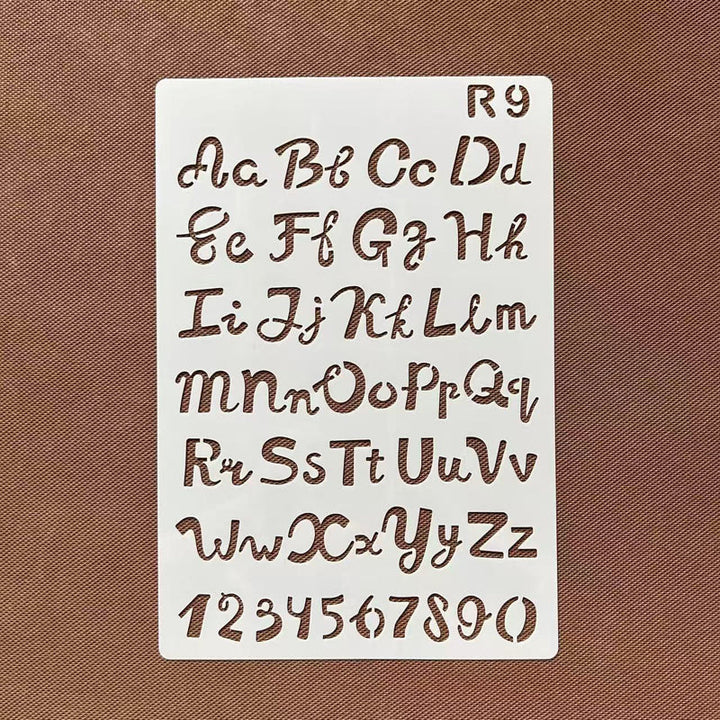 R9
Aa Bb Cc Dd
Ee Ff Gg Hh
Ii Jj Kk Ll m
M Nn Oo Pp Qq
Rr Ss Tt Uu Vv
Ww Xx Yy Zz
1234567890